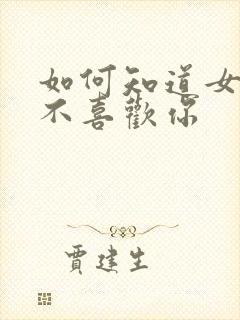 如何知道女
不喜歡你
賈建生